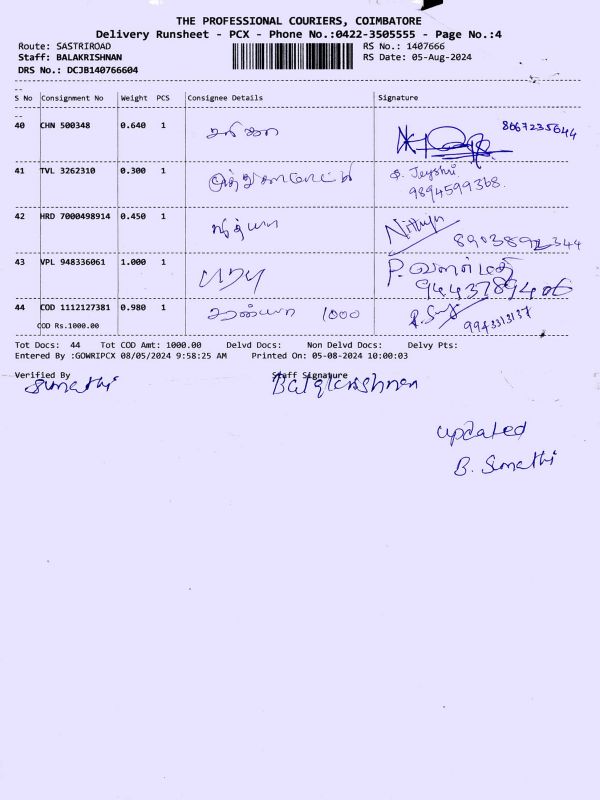 THE PROFESSIONAL COURIERS, COIMBATORE
Delivery Runsheet - PCX - Phone No.:0422-3505555 - Page No.:4
Route: SASTRIROAD RS No.: 1407666
Staff: BALAKRISHNAN RS Date: 05-Aug-2024
DRS No.: DCJB140766604
S No Consignment No Weight PCS Consignee Details Signature
40 CHN 500348 0.640 1 8667235644
41 TVL 3262310 0.300 1 Jeyshri
9894599368.
42 HRD 7000498914 0.450 1 நித்யா Nithya
8903892344
43 VPL 948336061 1.000 1 P.
9443789406
44 COD 1112127381 0.980 1 1000 9943313137
COD Rs.1000.00
Tot Docs: 44 Tot COD Amt: 1000.00 Delvd Docs: Non Delvd Docs: Delvy Pts:
Entered By :GOWRIPCX 08/05/2024 9:58:25 AM Printed On: 05-08-2024 10:00:03
Verified By Staff Signature
Sumathi Balakrishnan
updated
B. Sumathi